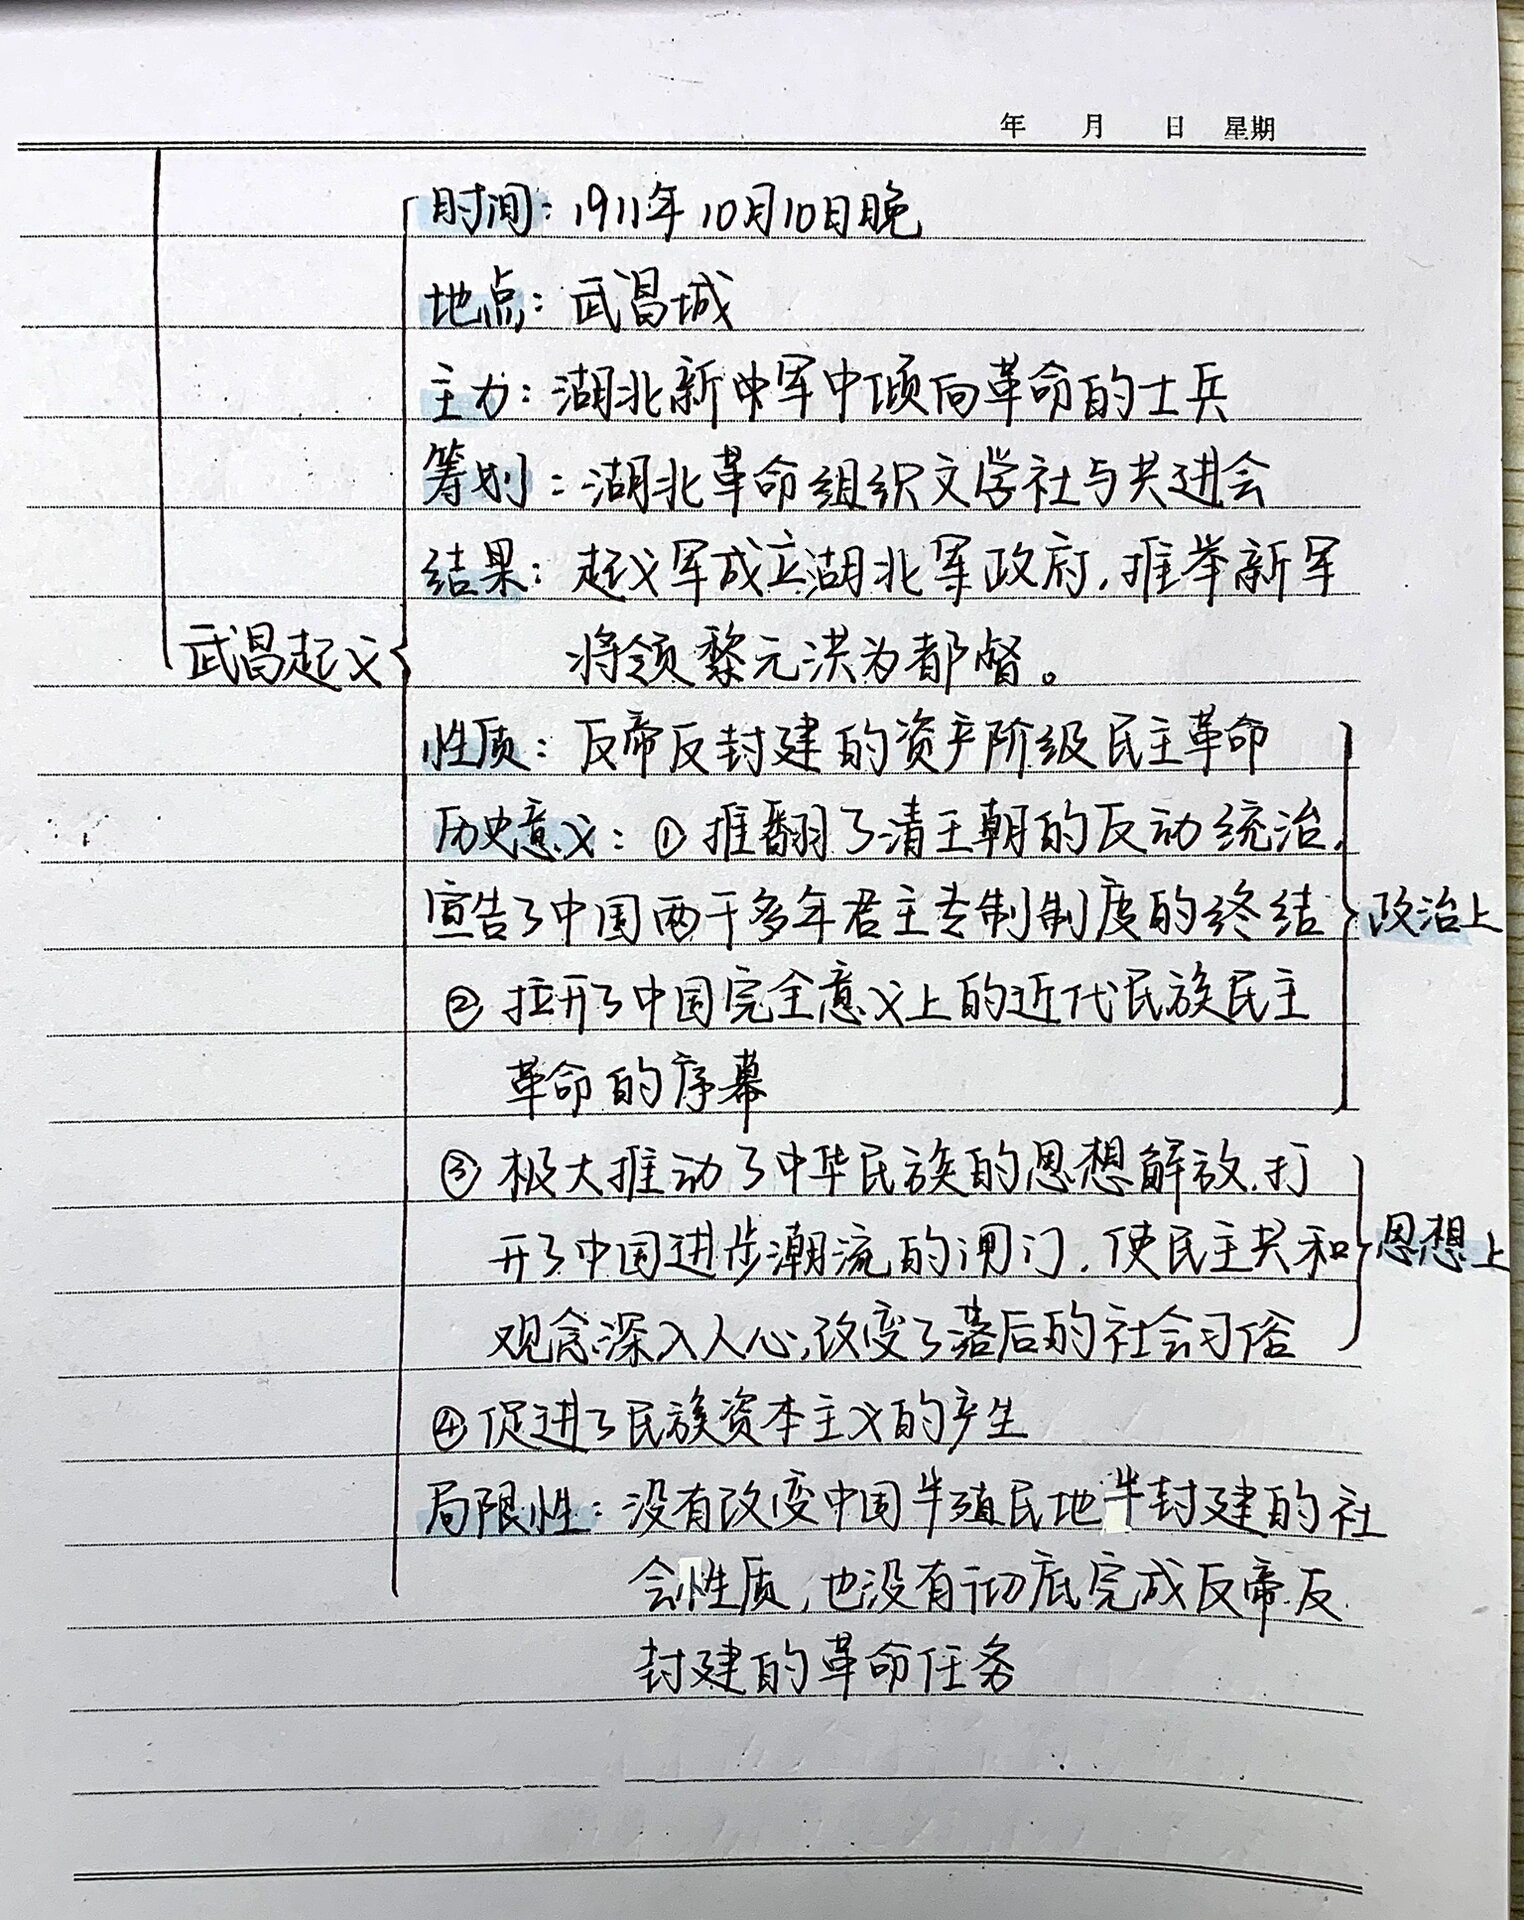 年 月 日 星期
时间：1911年10月10日晚
地点：武昌城
主力：湖北新军中倾向革命的士兵
筹划：湖北革命组织文学社与共进会
结果：起义军成立湖北军政府，推举新军
武昌起义
将领黎元洪为都督。
性质：反帝反封建的资产阶级民主革命
历史意义：①推翻了清王朝的反动统治，
宣告了中国两千多年君主专制制度的终结
政治上
②拉开了中国完全意义上的近代民族民主
革命的序幕
③极大推动了中华民族的思想解放，打
开了中国进步潮流的闸门，使民主共和
思想上
观念深入人心，改变了落后的社会习俗
④促进了民族资本主义的产生
局限性：没有改变中国半殖民地半封建的社
会性质，也没有彻底完成反帝反
封建的革命任务